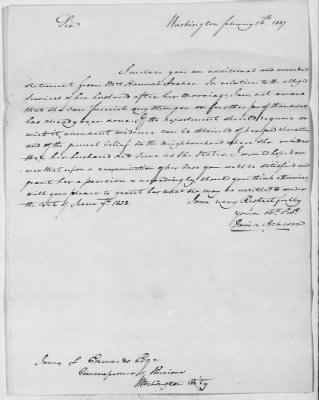 Sir Washington January 16th 1837
I enclose you an additional and amended
statement from Mrs Hannah In relation to the alleged
Services of her husband after her Marriage. I am not aware
that she can furnish any stronger or further proof than what
has already been done. If the department should require or
wish it, abundant evidence can be obtained of her good character
and of the general belief in the neighbourhood where she resides
that her husband did serve as She States. I would hope how
ever that upon a examination of her Case you will be satisfied and
grant her a pension accordingly, should you think otherwise
will you please to grant her what she may be entitled to under
the Act of June 7th 1832.
I am very Respectfully
your Obt Svt
David Acheson
James L Edwards Esqr
Commissioner of Pensions
Washington City